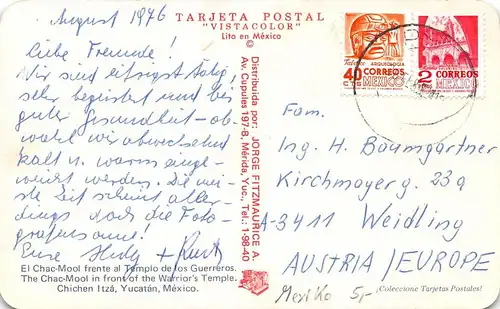 August 1976
TARJETA POSTAL
"VISTACOLOR"
Lito en México
©
Liebe Freunde!
Wir sind eifrigst tätig,
sehr begeistert und bei
guter Gesundheit – ob-
wohl wir abwechselnd
kalt u. warm einge-
weicht werden. Die mei-
ste Zeit scheint aller-
dings doch die Foto-
grafensonne!
Eure Hedy + Kurt
El Chac-Mool frente al Templo de los Guerreros.
The Chac-Mool in front of the Warrior's Temple.
Chichen Itzá, Yucatán, México.
Distribuida por: JORGE FITZMAURICE A.
Av. Cupules 197-B, Mérida, Yuc., Tel.: 1-98-40
Tabasco ARQUEOLOGIA
40 CORREOS
MEXICO
2 CORREOS
MEXICO
Fam.
Ing. H. Baumgartner
Kirchmayerg. 23a
A-3411 Weidling
AUSTRIA/EUROPE
Mexiko 5,-
¡Coleccione Tarjetas Postales!